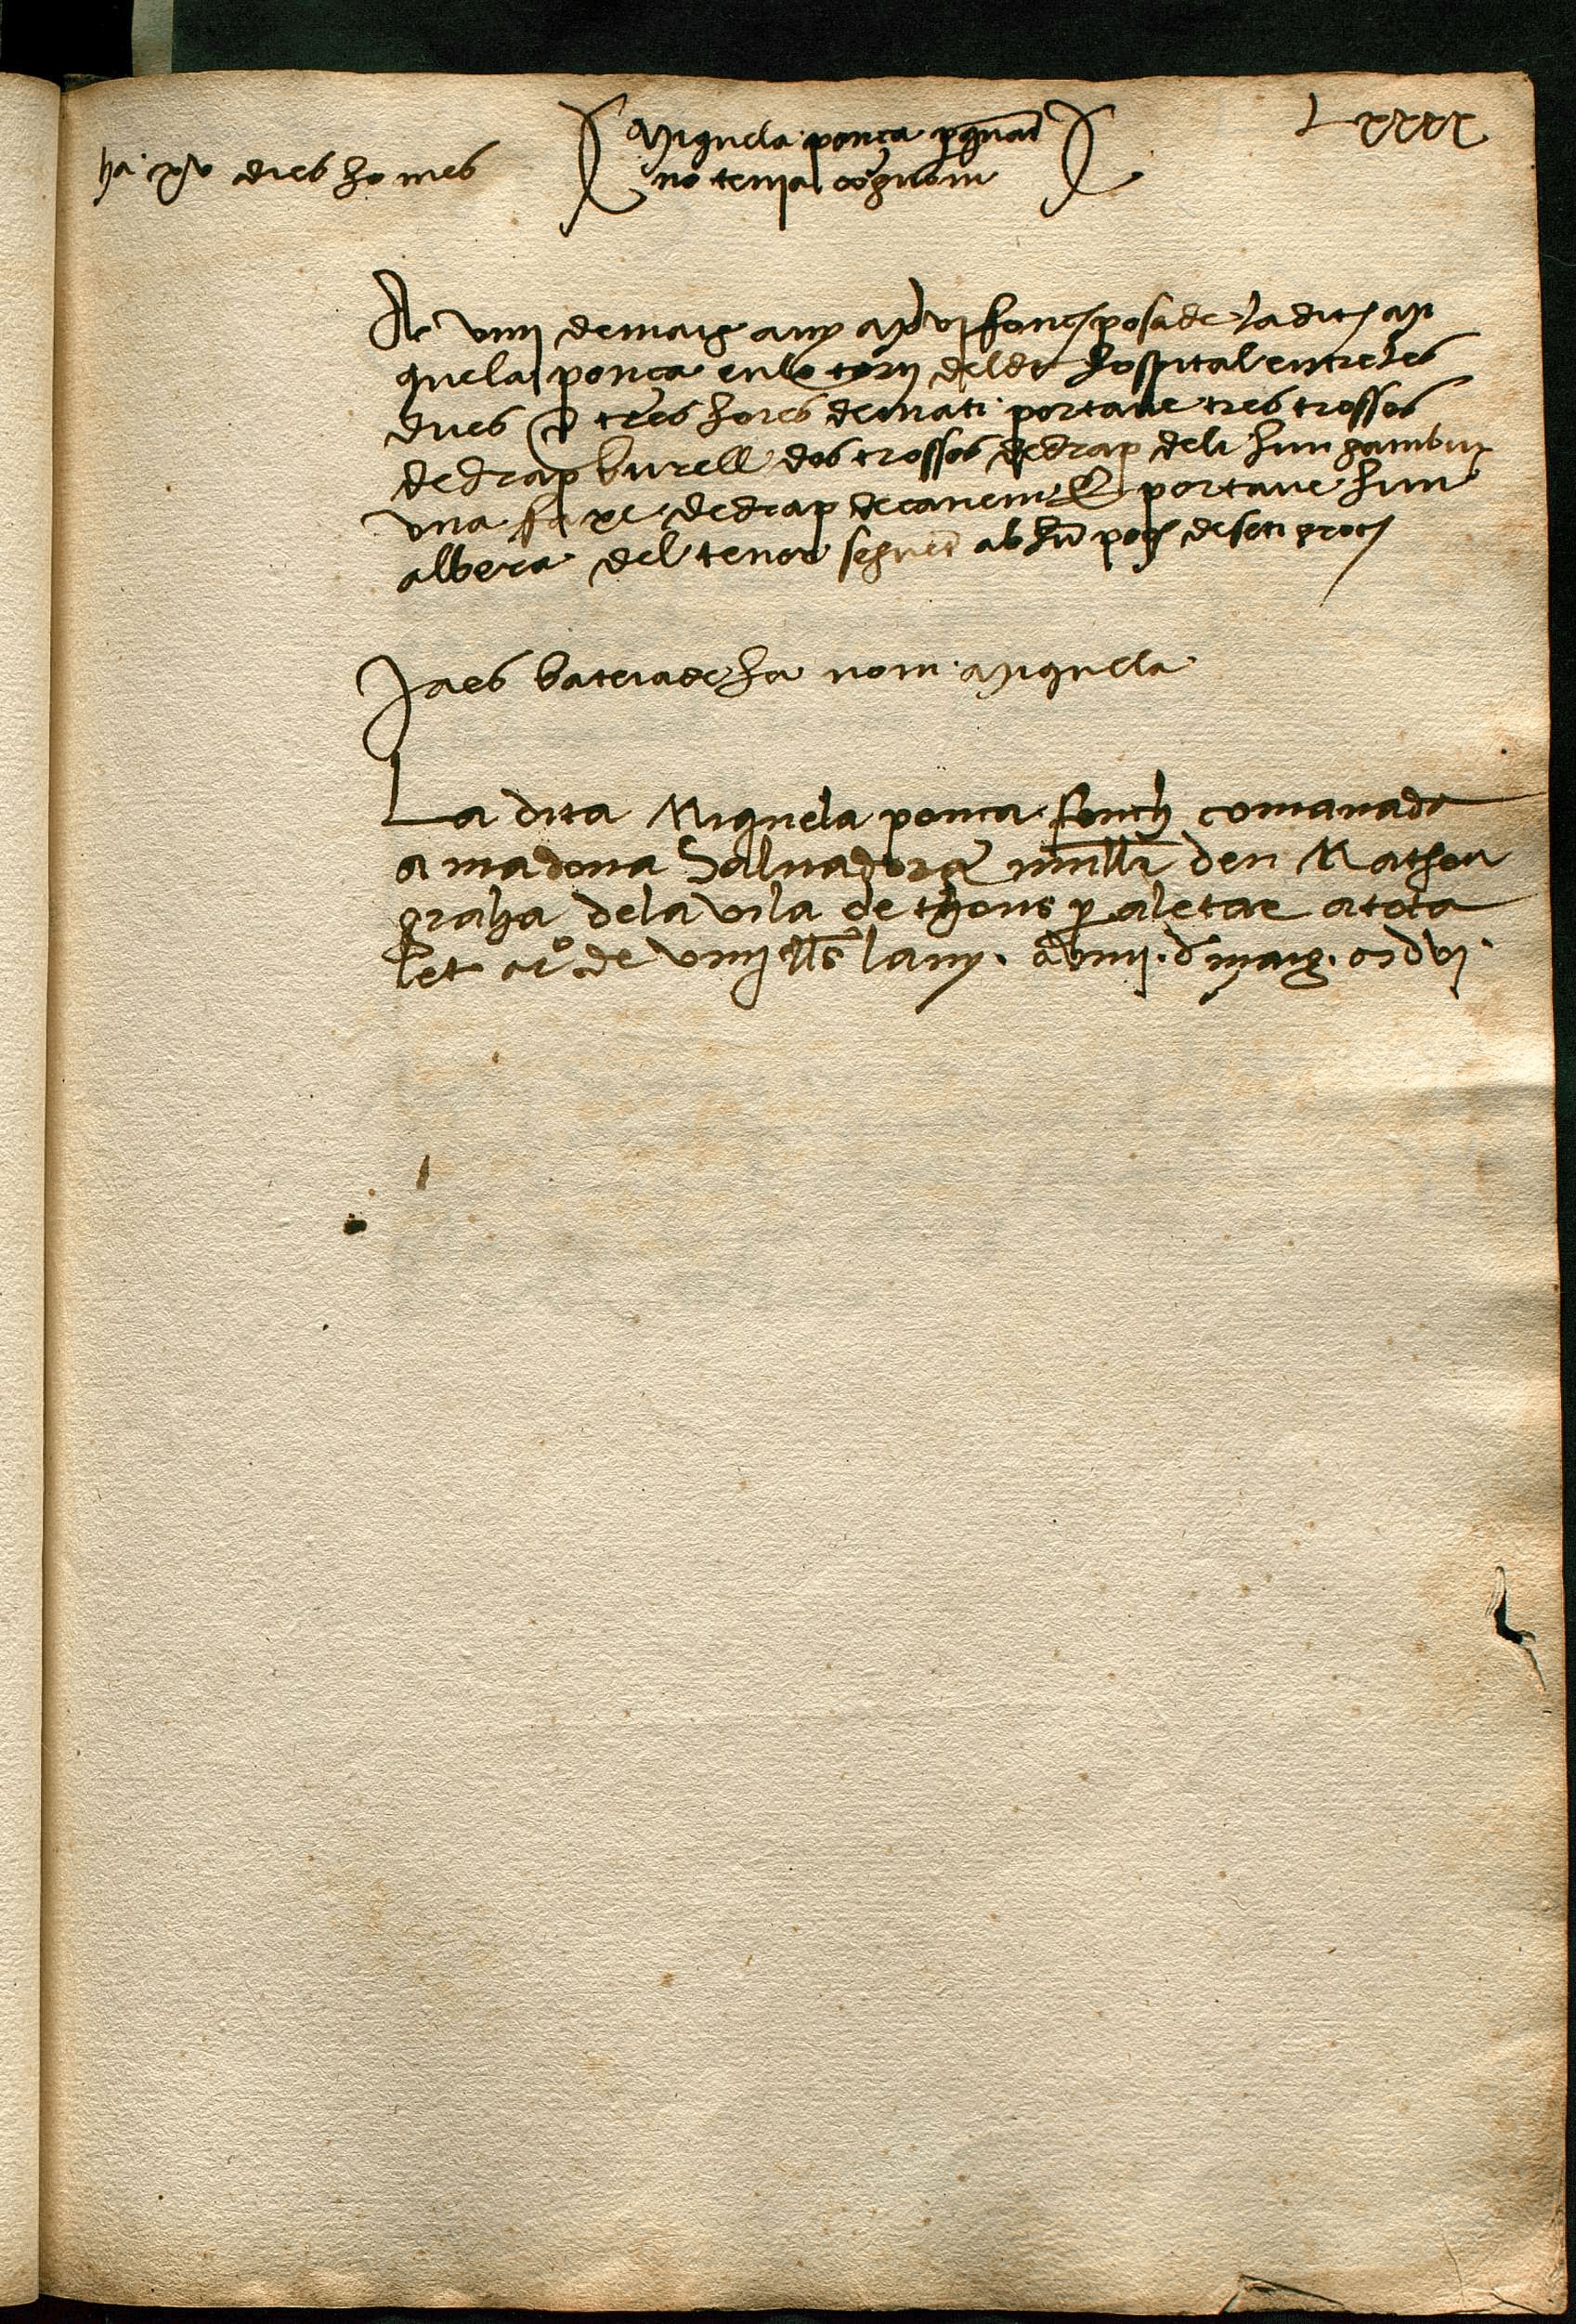 ha xv dies ho mes
Miquela ponça perque
no tenia cognom
Lxxxx
A viiij de maig any Mdvj fonch posade la dita mi
quela ponça en lo torn del dit hospital entre les
dues y tres hores de mati portave tres trossos
de drap burell dos trossos de drap de li hun gambuix
una faxe de drap de canem E portave hun
albera del tenor seguent ab hun poch de seti groch
Ja es bateiade ha nom Miquela
La dita Miquela ponça fonch comanada
a madona Salvadora muller den Matheu
graha dela vila de per aletar a tota
let de viiij lls lany. a viiij. d maig. Mdvj.